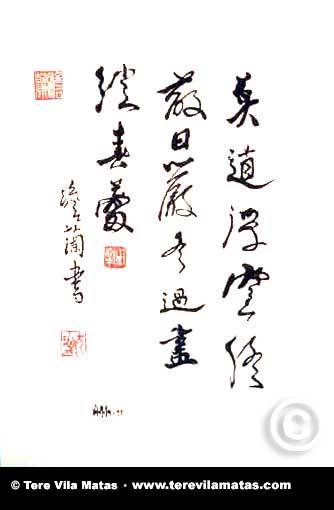 莫道浮雲終
蔽日嚴冬過盡
綻春蕾
蘭書
©
© Tere Vila Matas • www.terevilamatas.com